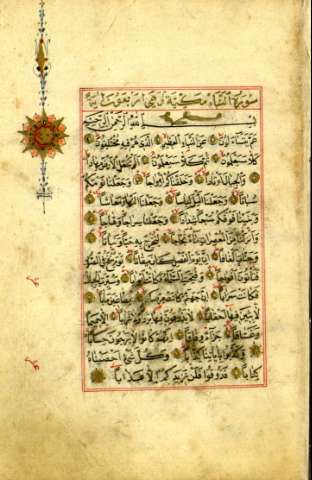 سورة النبأ مكية وهي اربعون اية
بسم الله الرحمن الرحيم
عم يتساءلون عن النبإ العظيم الذي هم فيه مختلفون
كلا سيعلمون ثم كلا سيعلمون ألم نجعل الأرض مهادا
والجبال أوتادا وخلقناكم أزواجا وجعلنا نومكم
سباتا وجعلنا الليل لباسا وجعلنا النهار معاشا
وبنينا فوقكم سبعا شدادا وجعلنا سراجا وهاجا
وأنزلنا من المعصرات ماء ثجاجا لنخرج به حبا ونباتا
وجنات ألفافا إن يوم الفصل كان ميقاتا يوم ينفخ في الصور
فتأتون أفواجا وفتحت السماء فكانت أبوابا وسيرت الجبال
فكانت سرابا إن جهنم كانت مرصادا للطاغين مآبا
لابثين فيها أحقابا لا يذوقون فيها بردا ولا شرابا إلا حميما
وغساقا جزاء وفاقا إنهم كانوا لا يرجون حسابا
وكذبوا بآياتنا كذابا وكل شيء أحصيناه
كتابا فذوقوا فلن نزيدكم إلا عذابا